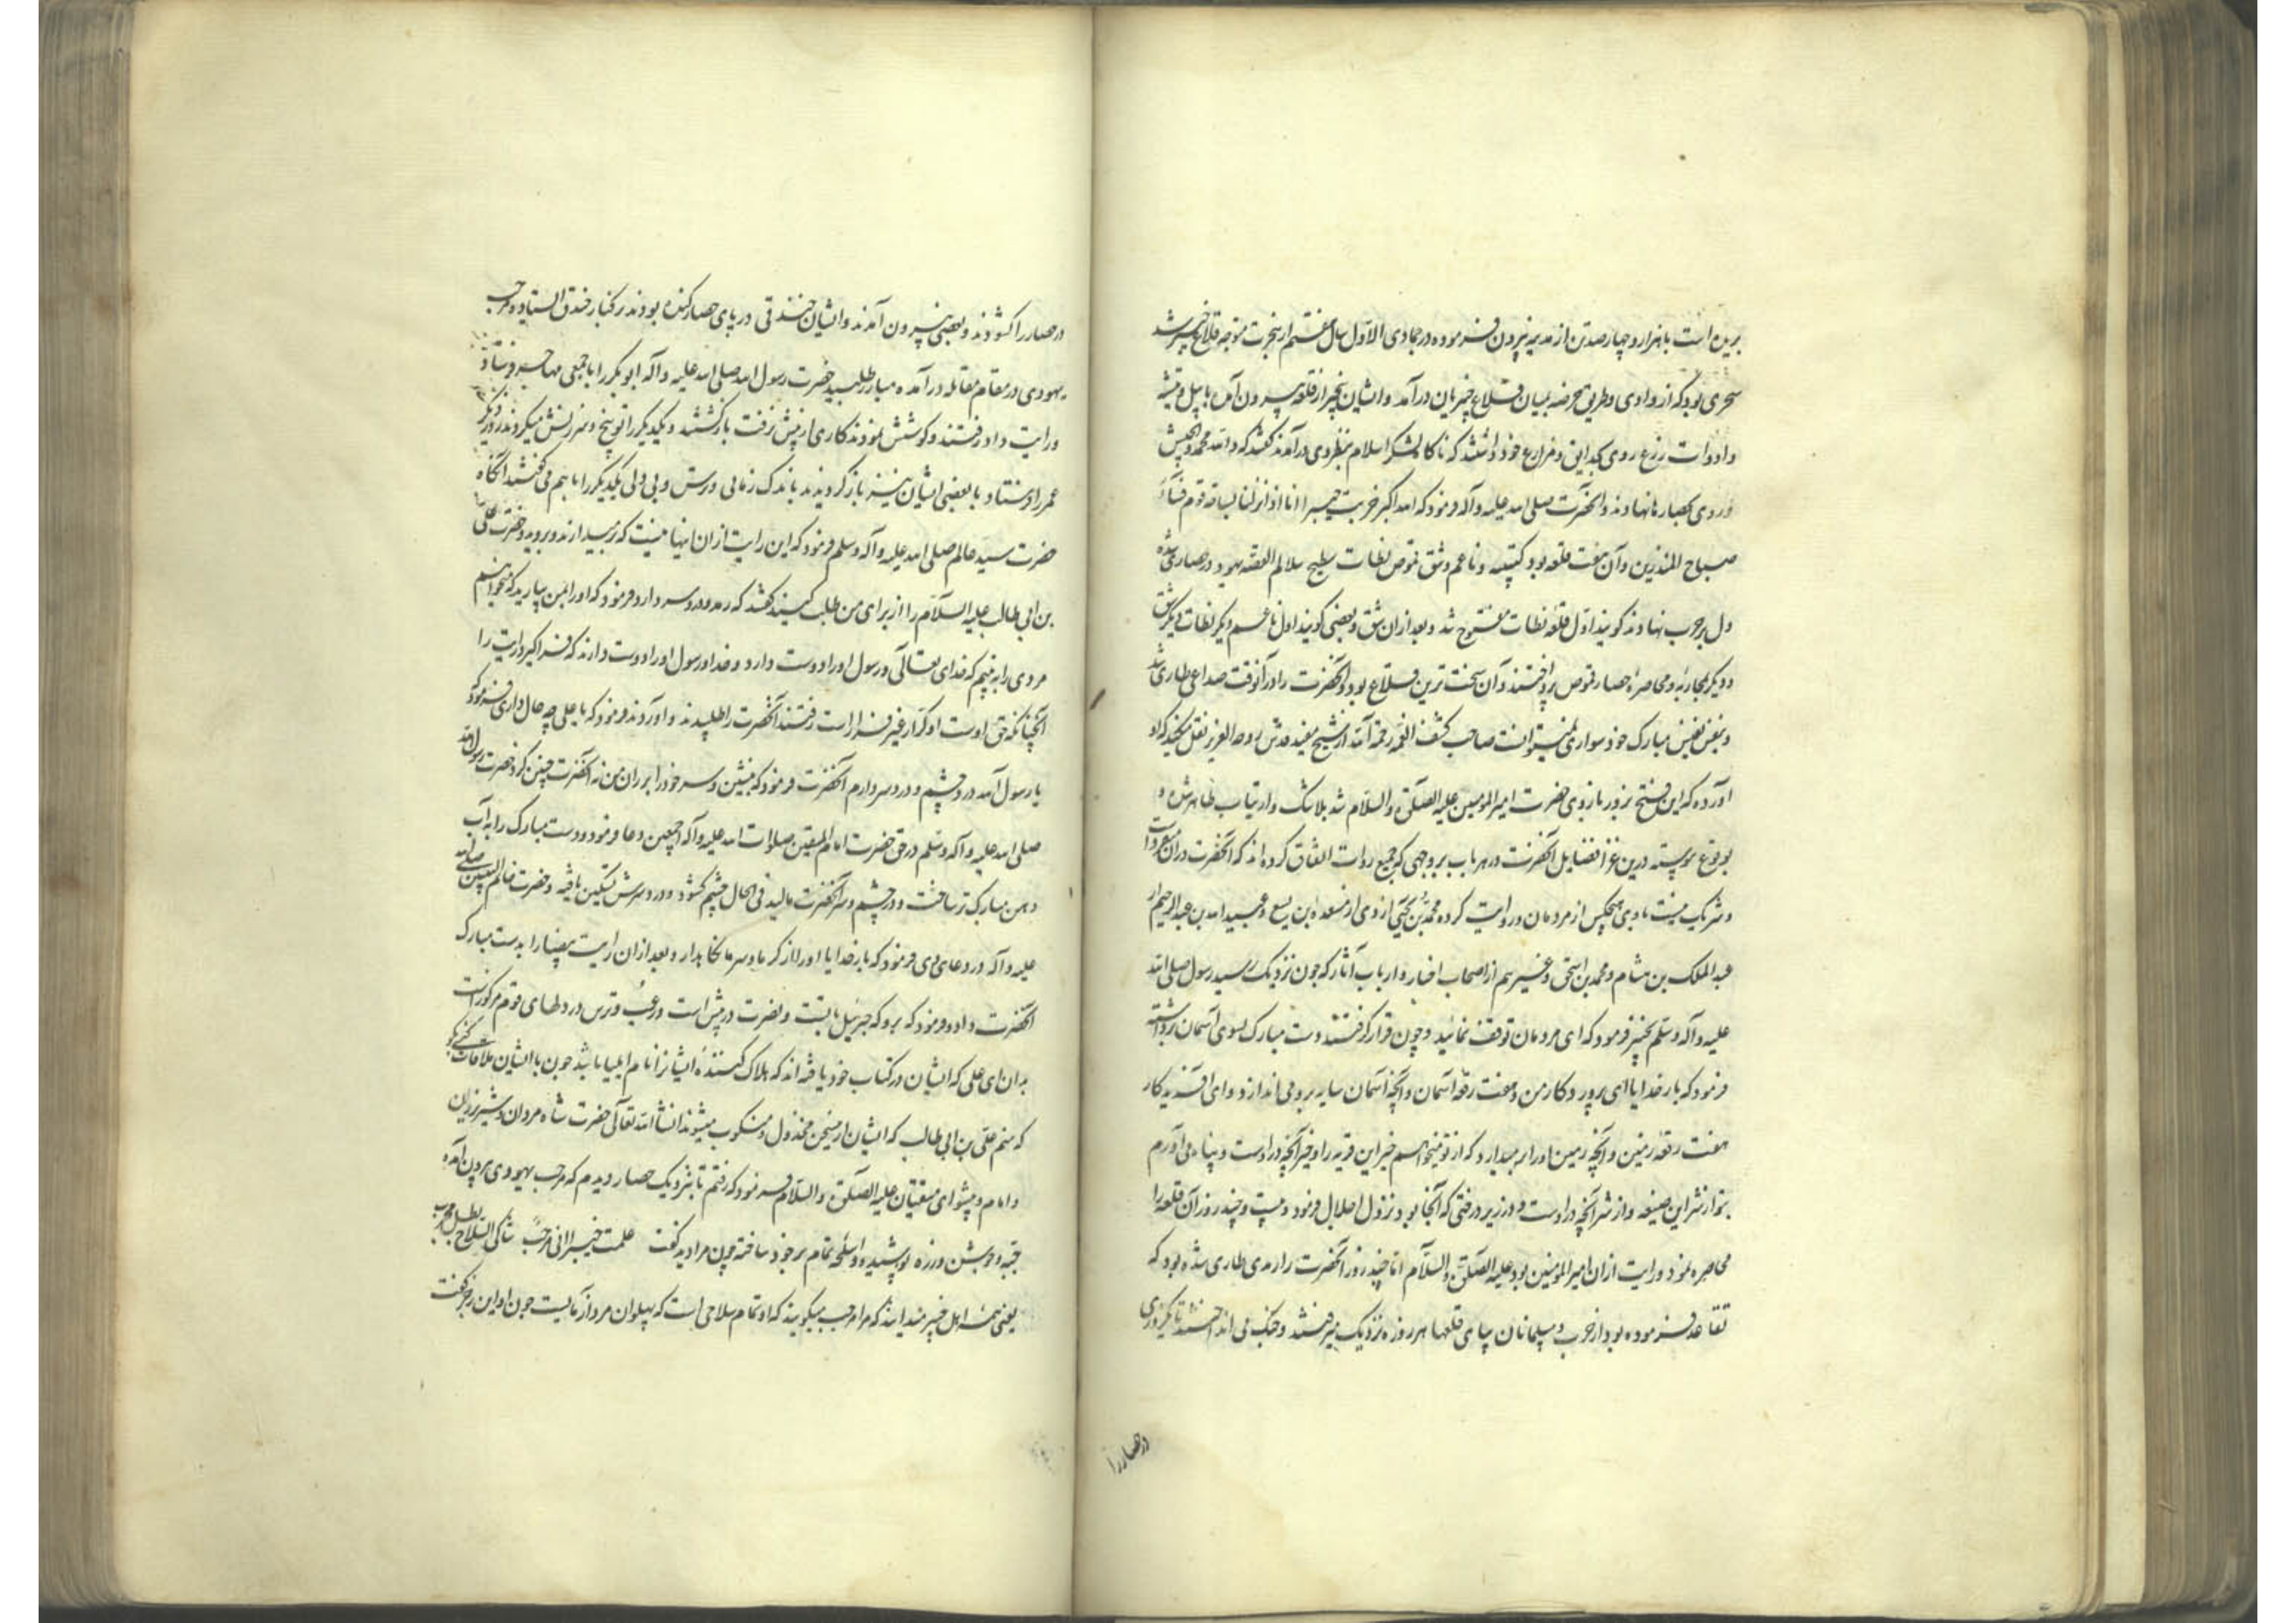 برین است با هزار و چهار صد تن از مدینه بیرون فرموده در جمادی الاول سال هفتم از هجرت متوجه قلاع خیبر شد
سحری بود که از وادی وطریق حرضه بمیان قلاع خیبریان در آمد و ایشان بیخبر از قلعه بیرون آمده با بیل و تیشه
و ادوات زرع روی بحدایق و مزارع خود داشتند که ناکاه لشکر اسلام بنظر وی درآمدند کفتند که والله محمد والجیش
و روی بحصارها نهادند و آنحضرت صلی الله علیه وآله فرمود که الله اکبر خربت خیبر انا اذا نزلنا بساحة قوم فساء
صباح المنذرین و آن هفت قلعه بود کتیبه و ناعم و شق قموص نطات سطیح سلالم القصه یهود در حصاری شده
دل بر حرب نهادند کویند اول قلعه نطات مفتوح شد و بعد از ان شق و بعضی کویند اول ناعم دیکر نطات دیکر شق
و دیکر بمحاربه و محاصره حصار قموص پرداختند و آن سخت ترین قلاع بود و آنحضرت را در آنوقت صداعی طاری شد
و بنفس نفیس مبارک خود سواری نمیتوانست صاحب کشف الغمه رحمة الله از شیخ مفید قدس روحه العزیز نقل میکند که او
آورده که این فتح بزور بازوی حضرت امیر المومنین علیه الصلوة والسلام شد بلا شک و ارتیاب ظاهر شده و
بوقوع پیوسته درین غزا فضایل آنحضرت در هر باب بر وجهی که جمیع روات اتفاق کرده اند که آنحضرت در ان متفردست
و شریک نیست با وی هیچکس از مردمان و روایت کرده محمد بن یحیی ازدی از مسعده ابن یسع و عبید الله بن عبد الرحیم از
عبد الملک بن هشام و محمد بن اسحق و غیرهم از اصحاب اخبار و ارباب آثار که چون نزدیک رسید رسول صلی الله
علیه وآله وسلم بخیبر فرمود که ای مردمان توقف نمائید و چون قرار کرفتند دست مبارک بسوی آسمان برداشته
فرمود که بار خدایا ای پرورد کار من و هفت رقعه آسمان و آنچه آسمان سایه برو می اندازد و ای آفریدکار
هفت رقعه زمین و آنچه زمین اورا برمیدارد که از تو میخواهم خیر این قریه را و خیر آنچه در اوست و پناه می آورم
بتو از شر این ضیعه و از شر آنچه در اوست و در زیر درختی که آنجا بود نزول اجلال فرمود و بیست و چند روز آن قلعه را
محاصره نمود و رایت از ان امیر المومنین بود علیه الصلوة والسلام اما چند روز آنحضرت را رمدی طاری شده بود که
تقاعد فرموده بود از حرب و مسلمانان بپای قلعها هر روزه نزدیک میرفتند و جنک می انداختند تا یکروزی
در حصار را
در حصار را کشودند و بعضی بیرون آمدند و ایشان خندقی در پای حصار کنده بودند در کنار خندق ایستاده و مرحب
یهودی در مقام مقاتله در آمده مبارز طلبید حضرت رسول الله صلی الله علیه وآله ابو بکر را با جمعی مهاجر فرستاد
و رایت داد رفتند و کوشش نمودند کاری از پیش نرفت باز کشتند و یکدیکر را توبیخ و سرزنش میکردند روز دیکر
عمر را فرستاد و با بعضی ایشان نیز باز کردیدند باندک زمانی و ترس و بی دلی یکدیکر را با هم می کفتند آنکاه
حضرت سید عالم صلی الله علیه وآله وسلم فرمود که این رایت از ان اینها نیست که برمیدارند و بروید و حضرت علی
بن ابی طالب علیه السلام را از برای من طلب کنید کفتند که رمد و درد سر دارد فرمود که اورا بمن بیارید که میخواهم
مردی را به بینم که خدای تعالی و رسول اورا دوست دارد و خدا و رسول اورا دوست دارند که فرا کیرد رایت را
آنچنانکه حق اوست او کرار غیر فرار است رفتند آنحضرت را طلبیدند و آوردند و فرمود که یا علی چه حال داری فرمود که
یا رسول الله درد چشم و درد سر دارم آنحضرت فرمود که بنشین و سر خود را بر ران من نه آنحضرت چنین کرد حضرت رسول الله
صلی الله علیه وآله وسلم در حق حضرت امام المتقین صلوات الله علیه وآله اجمعین دعا فرمود و دست مبارک را به آب
دهن مبارک تر ساخت و در چشم و سر آنحضرت مالید فی الحال چشم کشود و درد سرش تسکین یافته و حضرت خاتم النبیین صلی الله
علیه وآله در دعای وی فرمود که بار خدایا اورا از کرما و سرما نکاه بدار و بعد از ان رایت بیضا را بدست مبارک
آنحضرت داد و فرمود که برو که جبرئیل با تست و نصرت در پیش است و رعب و ترس در دلهای قوم مرکوز است
بدان ای علی که ایشان در کتاب خود یافته اند که هلاک کننده ایشانرا نام ایلیا باشد چون با ایشان ملاقات کنی بکو
که منم علی بن ابی طالب که ایشان از سخن مخذول و منکوب میشوند انشاء الله تعالی حضرت شاه مردان و شیر یزدان
و امام و پیشوای متقیان علیه الصلوة والسلام فرمود که رفتم تا بنزدیک حصار دیدم که مرحب یهودی بیرون آمده
جبه و جوشن و زره پوشیده و اسلحه تمام بر خود ساخته چون مرا دید کفت علمت خیبر انی مرحب شاکی السلاح بطل مجرب
یعنی همه اهل خیبر میدانند که مرا مرحب میکویند که او تمام سلاحی است که پهلوان مرد آزمائیست چون او این رجز کفت